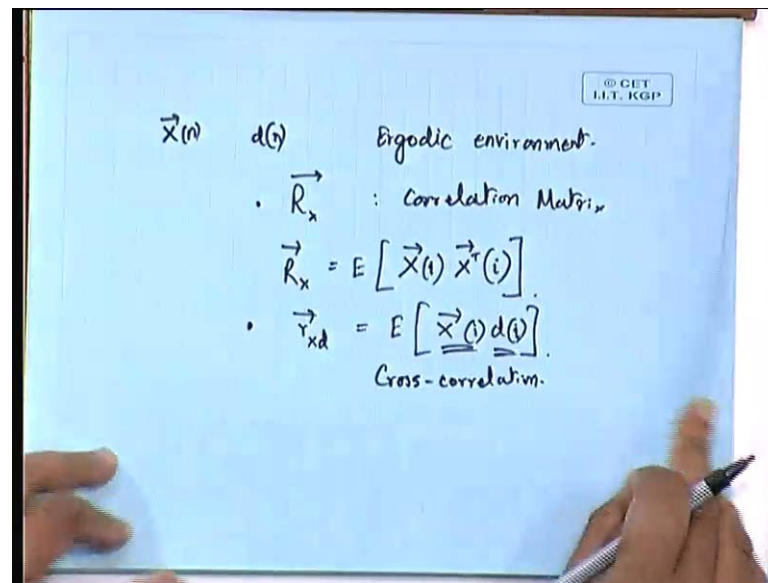 © CET
I.I.T. KGP
x⃗(n) d(n) Ergodic environment.
. R⃗ₓ : Correlation Matrix
R⃗ₓ = E [ x⃗(i) x⃗ᵀ(i) ].
. r⃗_xd = E [ x⃗(i) d(i) ].
Cross-correlation.